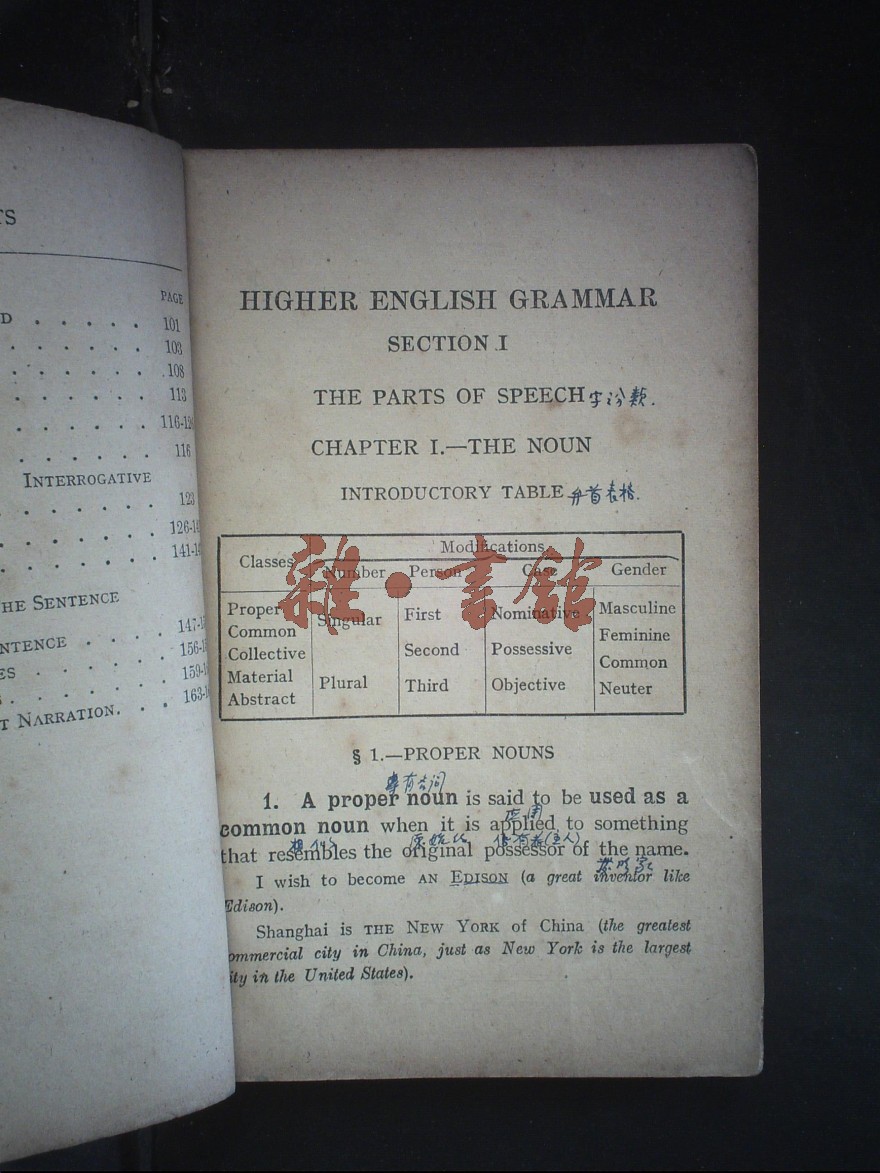 TS
PAGE
D . . . . . 101
. . . . . . 103
. . . . . . 108
. . . . . . 113
. . . . . . 116-12
. . . . . . 116
INTERROGATIVE
. . . . . . 123
. . . . . . 126-14
. . . . . . 141-1
HE SENTENCE
NTENCE . . . . 147-1
ES . . . . . . 156-1
. . . . . . 159-1
T NARRATION. . . 163-1
HIGHER ENGLISH GRAMMAR
SECTION I
THE PARTS OF SPEECH
CHAPTER I.—THE NOUN
INTRODUCTORY TABLE
Modifications
Classes Number Person Case Gender
Proper Singular First Nominative Masculine
Common Feminine
Collective Second Possessive Common
Material Plural Third Objective Neuter
Abstract
雜·書館
§ 1.—PROPER NOUNS
专有名词
1. A proper noun is said to be used as a
应用
common noun when it is applied to something
相似 原始 (主人)
that resembles the original possessor of the name.
I wish to become AN EDISON (a great inventor like
Edison).
Shanghai is THE NEW YORK of China (the greatest
ommercial city in China, just as New York is the largest
ity in the United States).